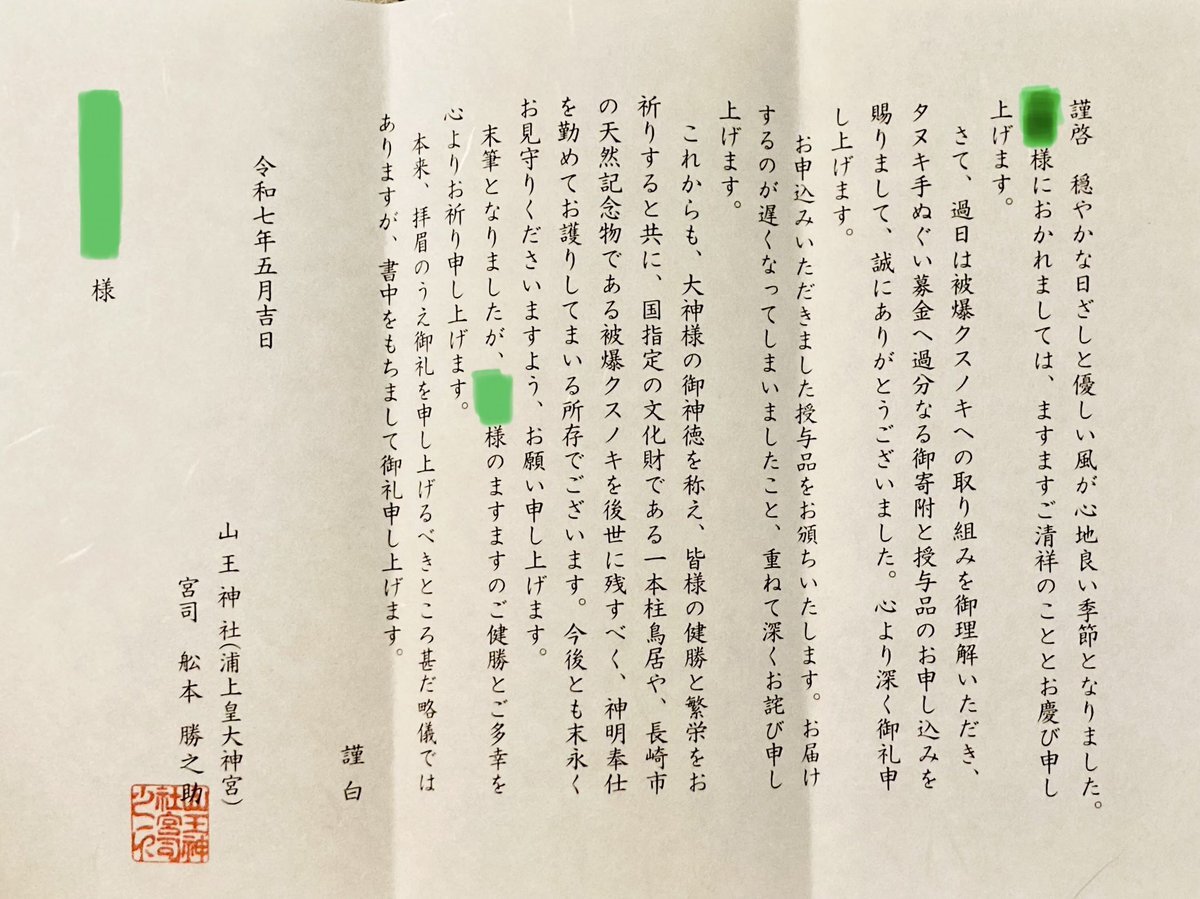 謹啓　穏やかな日ざしと優しい風が心地良い季節となりました。
様におかれましては、ますますご清祥のこととお慶び申し
上げます。
さて、過日は被爆クスノキへの取り組みを御理解いただき、
タヌキ手ぬぐい募金へ過分なる御寄附と授与品のお申し込みを
賜りまして、誠にありがとうございました。心より深く御礼申
し上げます。
お申込みいただきました授与品をお頒ちいたします。お届け
するのが遅くなってしまいましたこと、重ねて深くお詫び申し
上げます。
これからも、大神様の御神徳を称え、皆様の健勝と繁栄をお
祈りすると共に、国指定の文化財である一本柱鳥居や、長崎市
の天然記念物である被爆クスノキを後世に残すべく、神明奉仕
を勤めてお護りしてまいる所存でございます。今後とも末永く
お見守りくださいますよう、お願い申し上げます。
末筆となりましたが、様のますますのご健勝とご多幸を
心よりお祈り申し上げます。
本来、拝眉のうえ御礼を申し上げるべきところ甚だ略儀では
ありますが、書中をもちまして御礼申し上げます。
謹白
令和七年五月吉日
山王神社(浦上皇大神宮)
宮司　舩本勝之助
山王神
社宮司
様